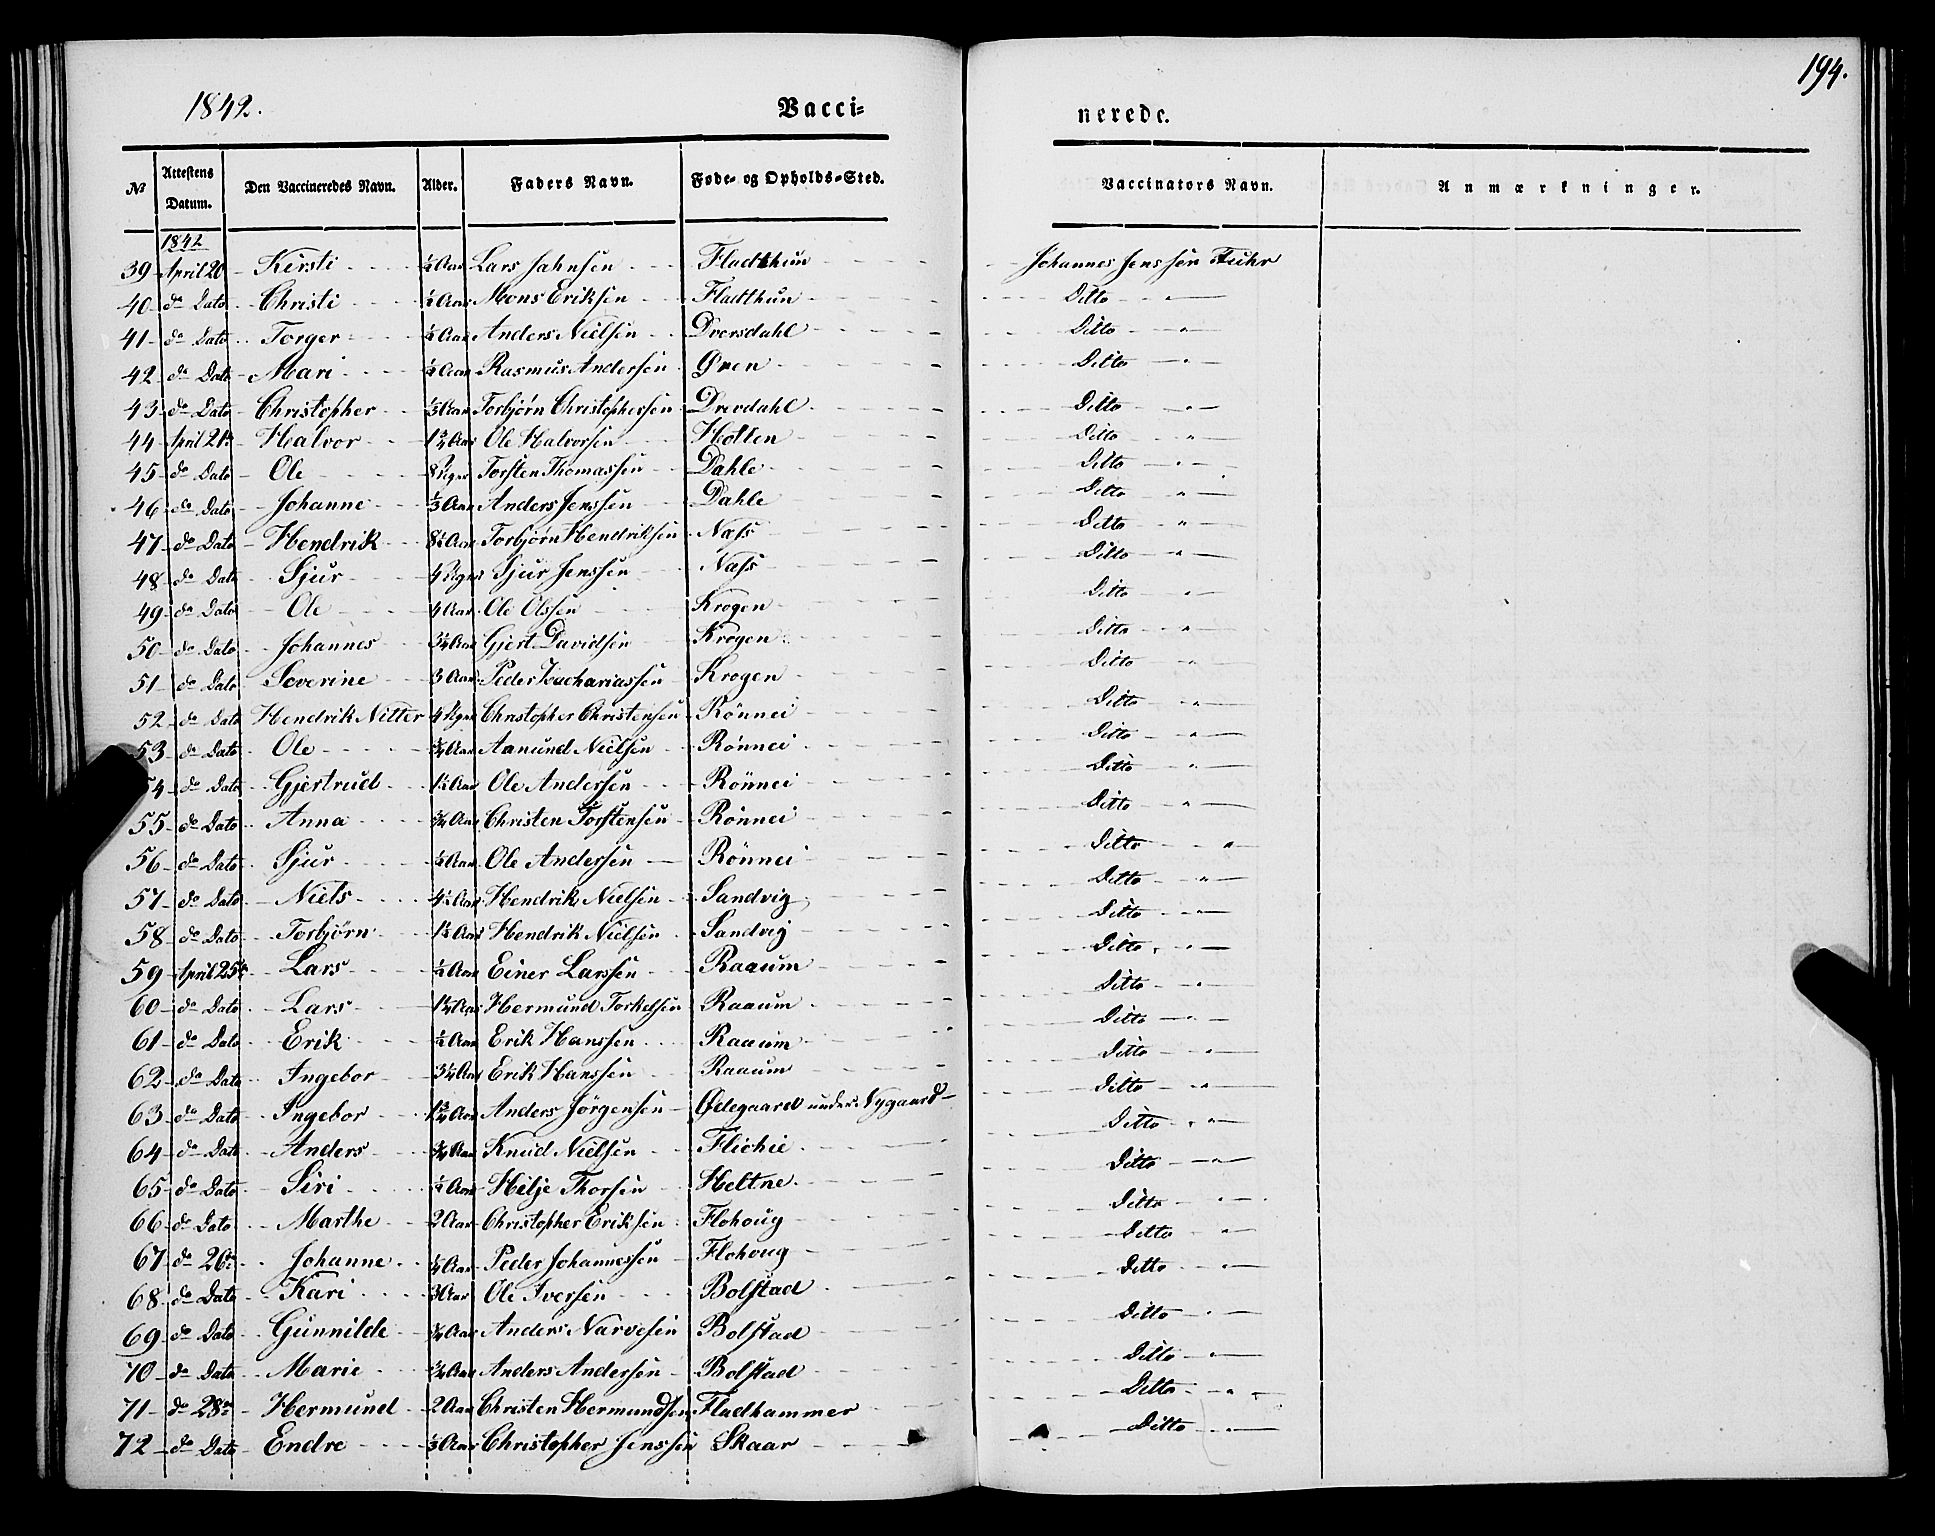 194.
1842. Vacci= nerede.
No Attestens Datum. Den Vaccineredes Navn. Alder. Faders Navn. Føde- og Opholds-Sted. Vaccinators Navn. Anmærkninger.
1842
39 April 20 Kirsti Aar Lars Jahnsen Fladthun Johannes Jenssen Fuhr
40 do Dato Christi Aar Mons Eriksen Fladthun Ditto "
41 do Dato Torger Aar Anders Nielsen Dversdahl Ditto "
42 do Dato Mari Aar Rasmus Andersen Øren Ditto "
43 do Dato Christopher Aar Torbjørn Christophersen Drevdahl Ditto "
44 April 21de Halvor Aar Ole Halvorsen Holten Ditto "
45 do Dato Ole 8 Uger Torsten Thomassen Dahle Ditto "
46 do Dato Johanne Aar Anders Jenssen Dahle Ditto "
47 do Dato Hendrik 8½ Aar Torbjørn Hendriksen Næss Ditto "
48 do Dato Sjur 4 Uger Sjur Jenssen Næss Ditto "
49 do Dato Ole 4 Aar Ole Olssen Krogen Ditto "
50 do Dato Johannes Aar Gjert Davidsen Krogen Ditto "
51 do Dato Severine 3 Aar Peder Zachariassen Krogen Ditto "
52 do Dato Hendrik Nitter 4 Uger Christopher Christensen Rönnei Ditto "
53 do Dato Ole ¾ Aar Aamund Nielsen Rönnei Ditto "
54 do Dato Gjertrud Aar Ole Anderssen Rönnei Ditto "
55 do Dato Anna ¾ Aar Christen Torstensen Rönnei Ditto "
56 do Dato Sjur Aar Ole Andersen Rönnei Ditto "
57 do Dato Niels Aar Hendrik Nielsen Sandvig Ditto "
58 do Dato Torbjørn Aar Hendrik Nielsen Sandvig Ditto "
59 April 25de Lars Aar Einer Larssen Raaum Ditto "
60 do Dato Lars Aar Hermund Torkelsen Raaum Ditto "
61 do Dato Erik Aar Erik Hanssen Raaum Ditto "
62 do Dato Ingebor 3¼ Aar Erik Hanssen Raaum Ditto "
63 do Dato Ingebor 1¾ Aar Anders Jörgensen Ødegaard under Nygaard Ditto "
64 do Dato Anders ¾ Aar Knud Nielsen Flichie Ditto "
65 do Dato Siri Aar Hilje Thorsen Heltne Ditto "
66 do Dato Marthe 2 Aar Christopher Eriksen Flohoug Ditto "
67 do 26de Johanne ¼ Aar Peder Johannessen Flohoug Ditto "
68 do Dato Kari 3 Aar Ole Iversen Bolstad Ditto "
69 do Dato Gunnilde ¾ Aar Anders Narvesen Bolstad Ditto "
70 do Dato Marie ¾ Aar Anders Andersen Bolstad Ditto "
71 do 28de Hermund 2 Aar Christen Hermundsen Fladhammer Ditto "
72 do Dato Endre Aar Christopher Jenssen Skaar Ditto "